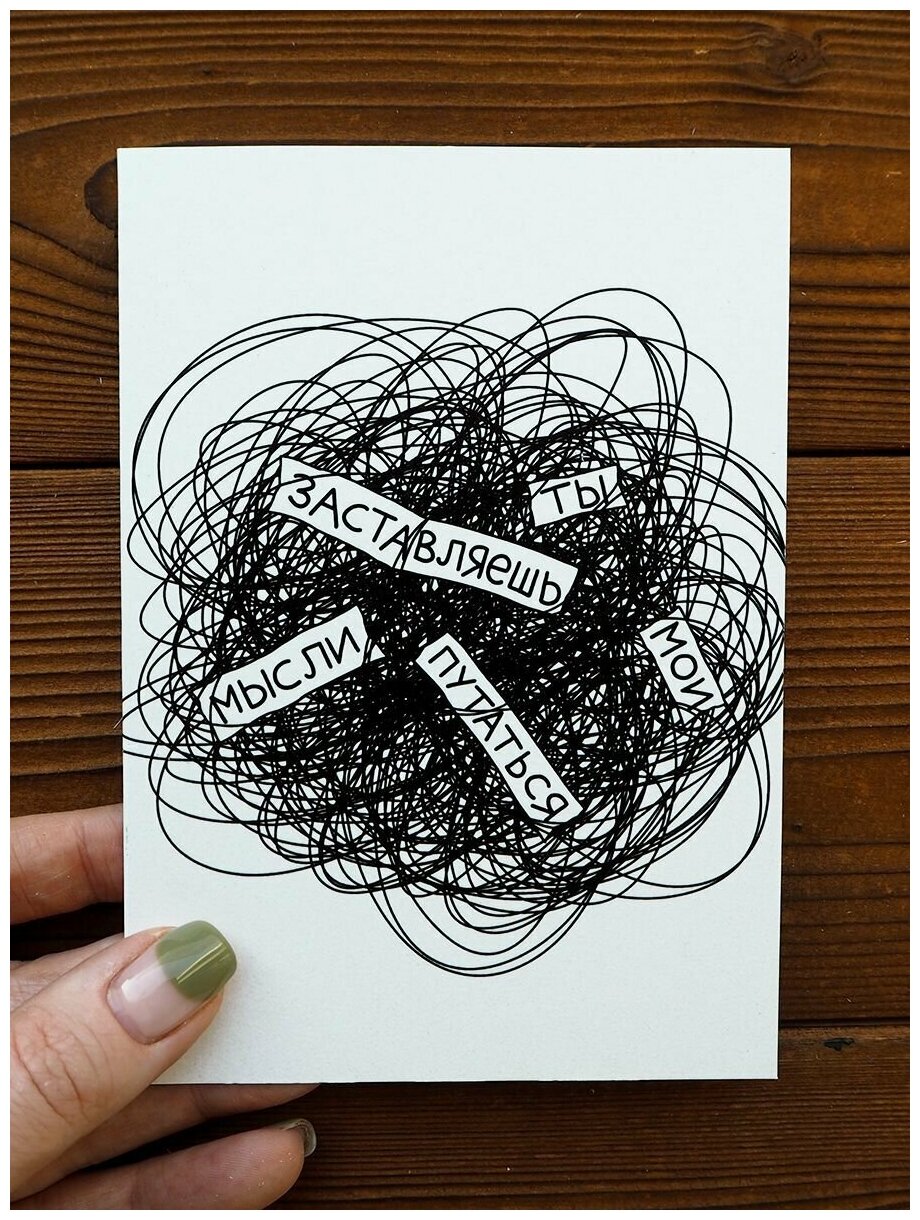 ЗАСТАВЛЯЕШЬ
ТЫ
МЫСЛИ
ПУТАТЬСЯ
МОИ